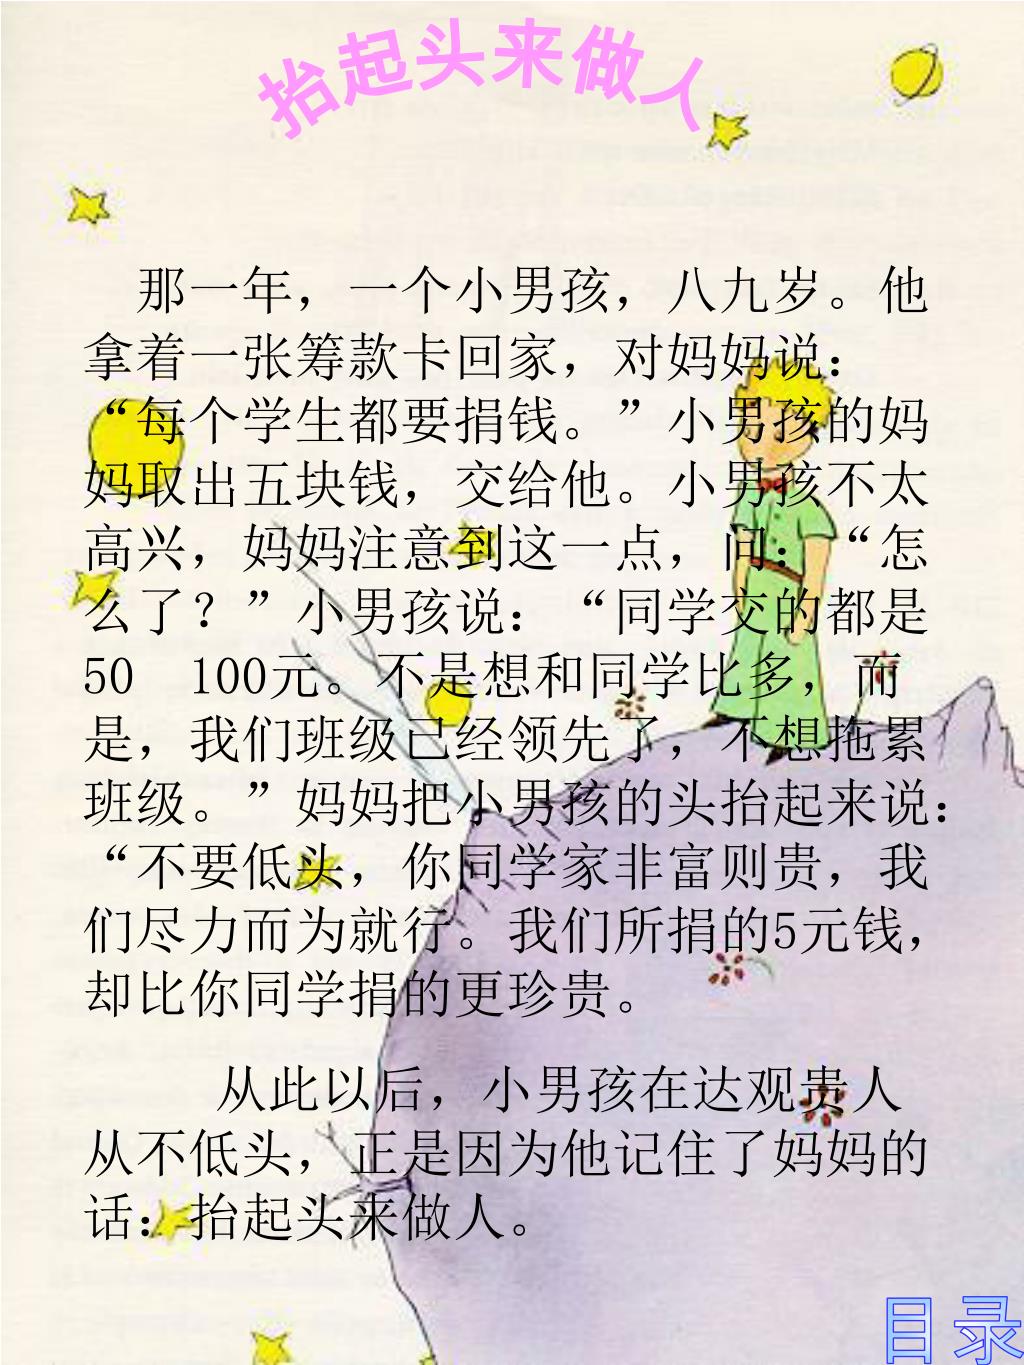 抬起头来做人
那一年，一个小男孩，八九岁。他
拿着一张筹款卡回家，对妈妈说：
“每个学生都要捐钱。”小男孩的妈
妈取出五块钱，交给他。小男孩不太
高兴，妈妈注意到这一点，问：“怎
么了？”小男孩说：“同学交的都是
50 100元。不是想和同学比多，而
是，我们班级已经领先了，不想拖累
班级。”妈妈把小男孩的头抬起来说：
“不要低头，你同学家非富则贵，我
们尽力而为就行。我们所捐的5元钱，
却比你同学捐的更珍贵。
从此以后，小男孩在达观贵人
从不低头，正是因为他记住了妈妈的
话：抬起头来做人。
目录